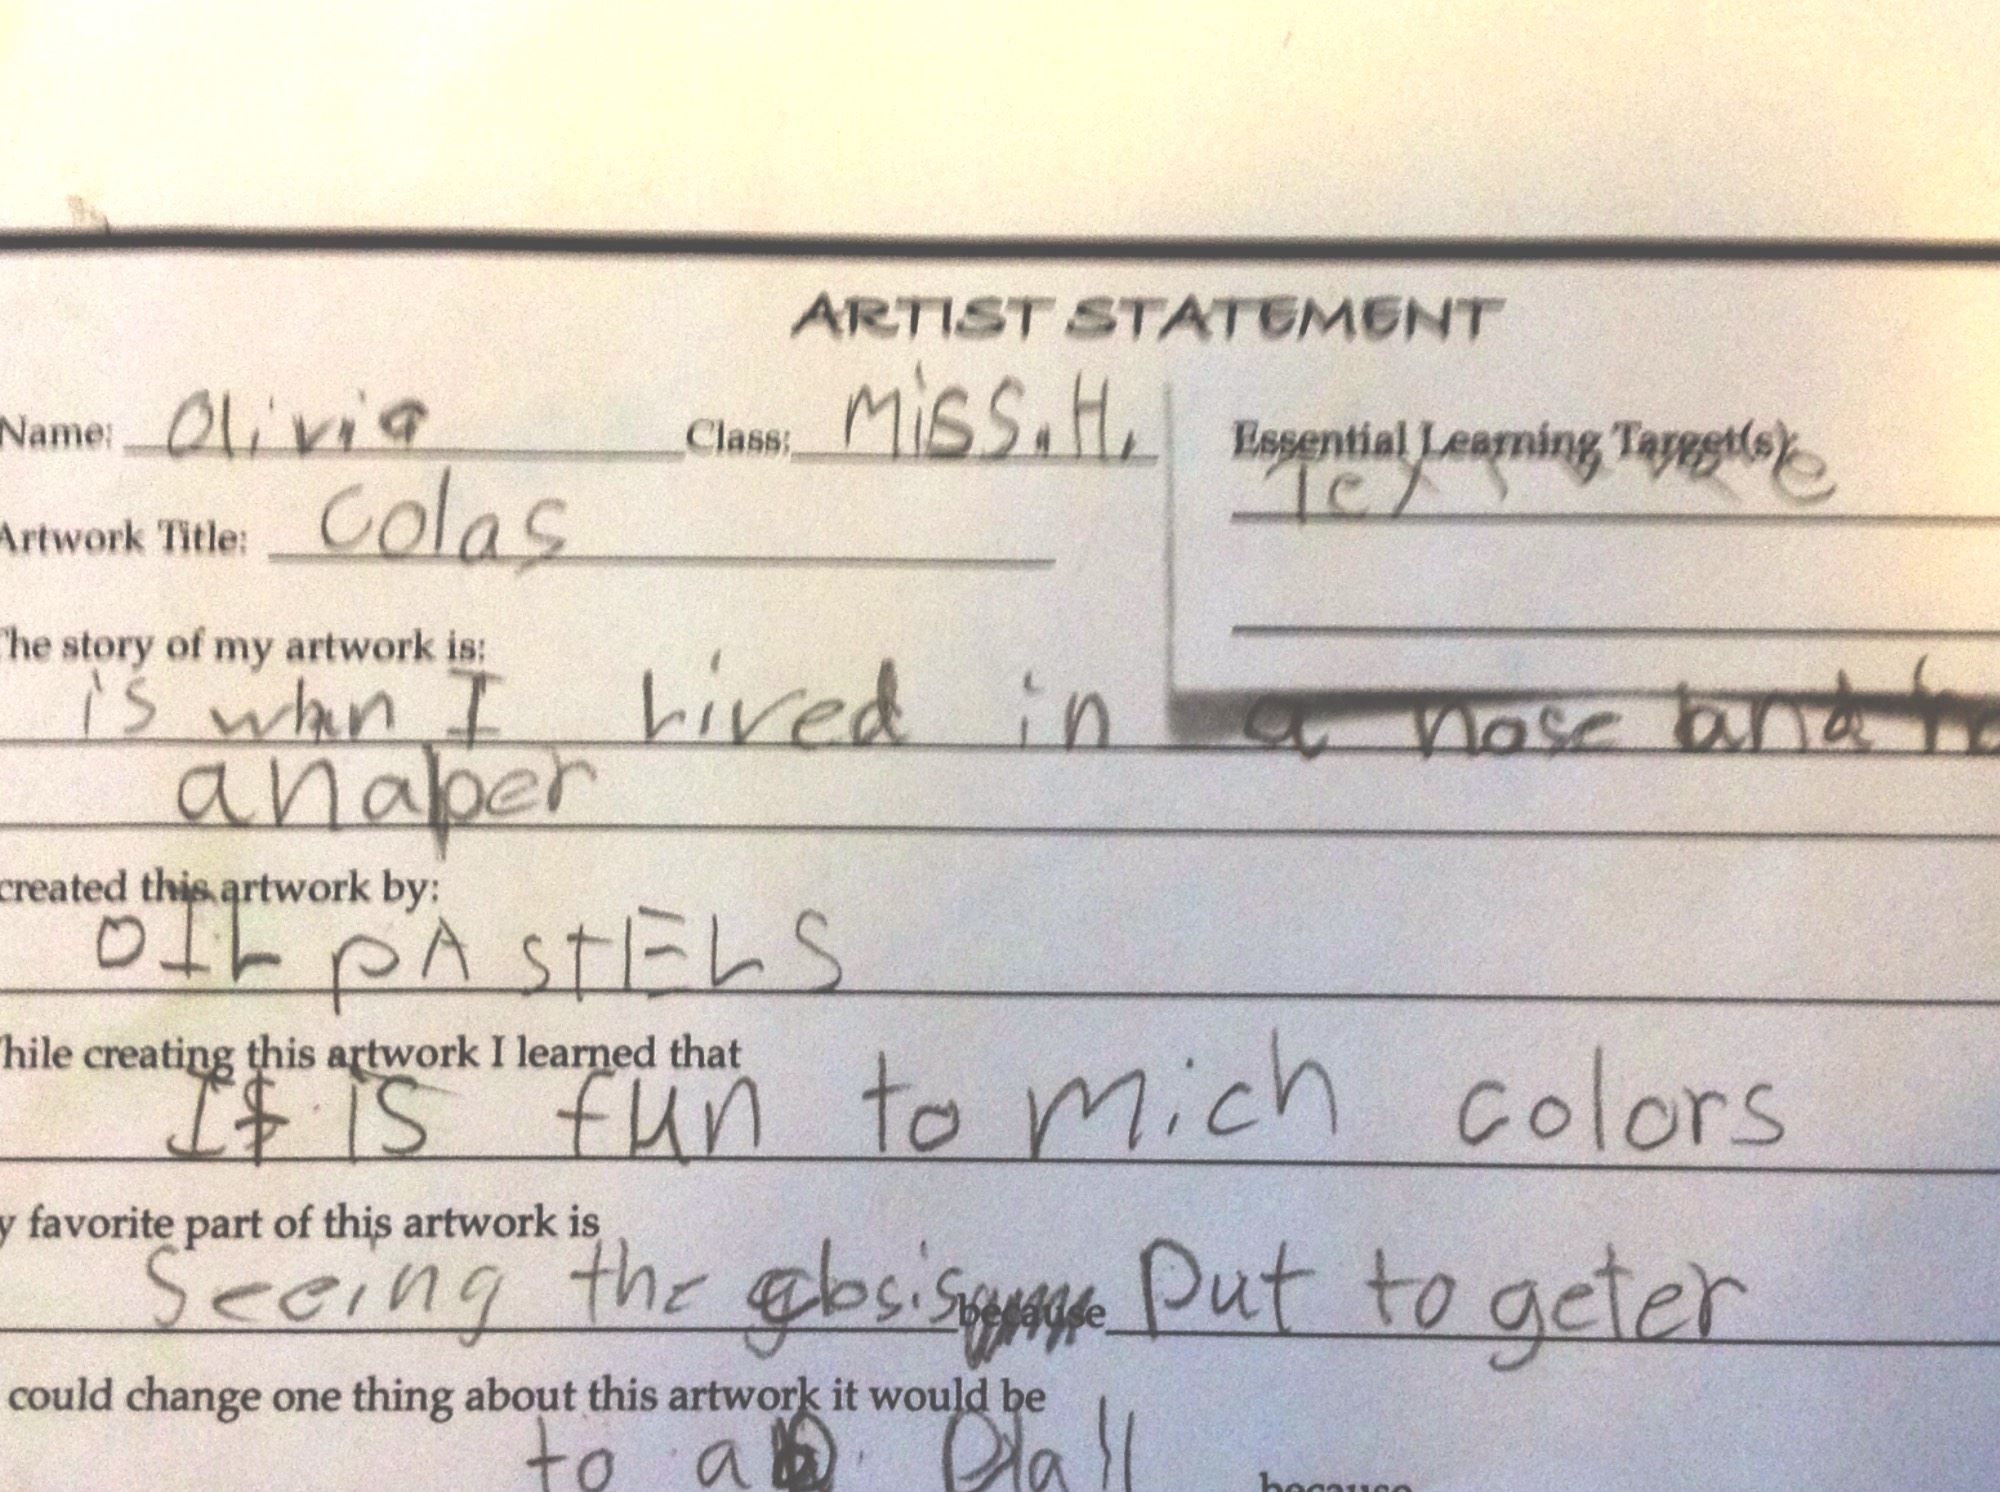 ARTIST STATEMENT
Name: Olivia Class: MiSS.H. Essential Learning Target(s)
Artwork Title: Colas
The story of my artwork is:
is whn I Lived in a hose and
anaper
created this artwork by:
OIL pAstELS
hile creating this artwork I learned that
It is fun to Mich colors
y favorite part of this artwork is
Seeing the because Put to geter
could change one thing about this artwork it would be
to
because